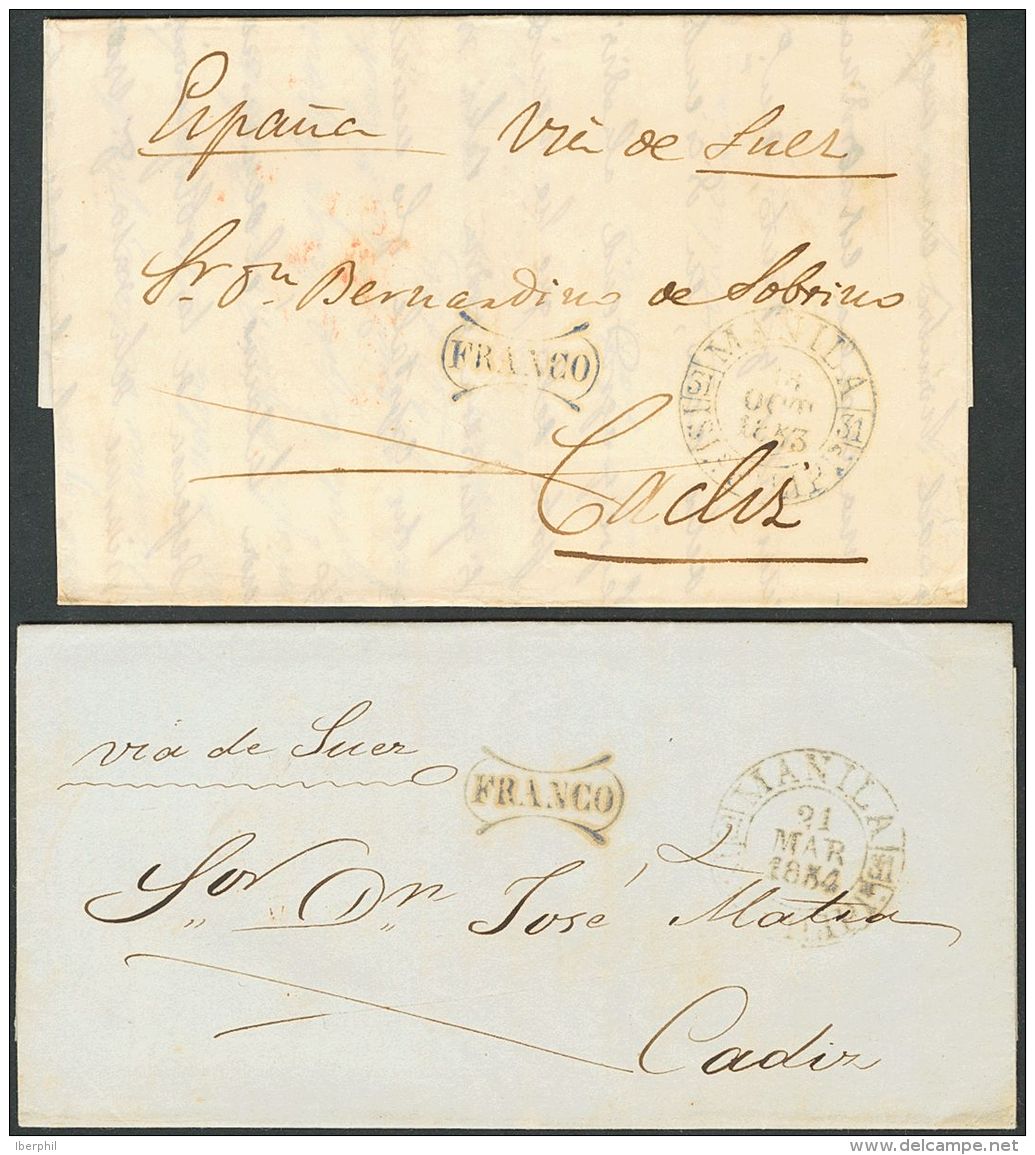 España Via de Suez
Sr Dn Bernardino de Sobrino
FRANCO
MANILA
31 31
OCT
1853
Cadiz
via de Suez
FRANCO
MANILA
21
MAR
1854
31
Sor Dn José Matia
Cadiz
Iberphil
delcampe.net